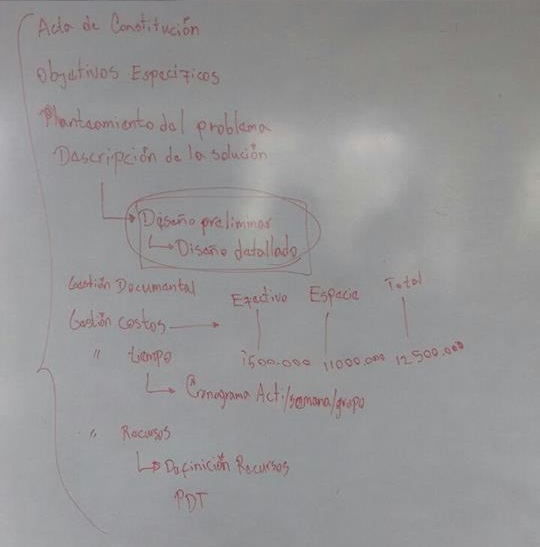 Acta de Constitución
Objetivos Específicos
Planteamiento del problema
Descripción de la solución
Diseño preliminar
Diseño detallado
Gestión Documental
Efectivo Especie Total
Gestión costos
1500.000 11000.000 12.500.000
" tiempo
Cronograma Acti/semana/grupo
" Recursos
Definición Recursos
PDT